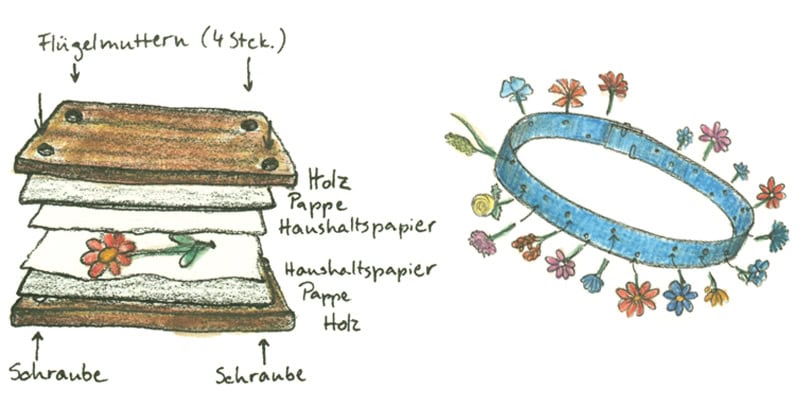 Flügelmuttern (4 Stck.)
Holz
Pappe
Haushaltspapier
Haushaltspapier
Pappe
Holz
Schraube
Schraube